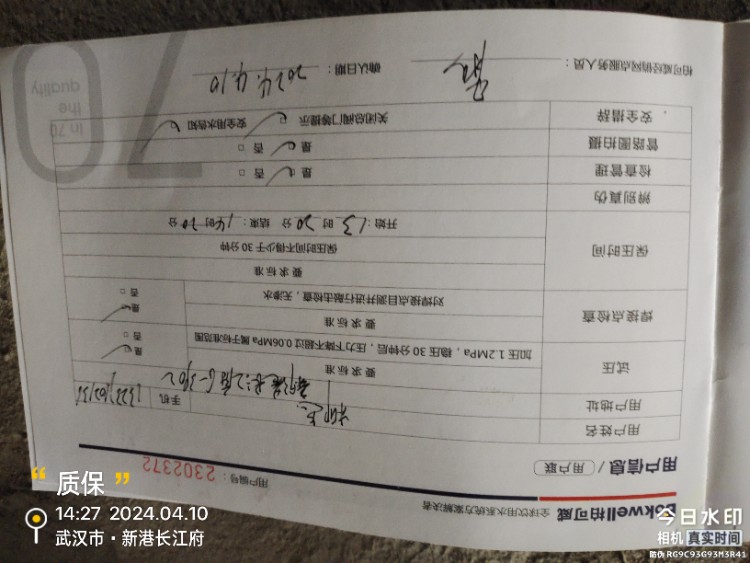 Bokwell柏可威 全球饮用水系统方案解决者
用户信息 / 用户联
用户编号：2302372
用户姓名
用户地址
手机
试压
要求标准
加压1.2MPa，稳压30分钟后，压力下降不超过0.06MPa属于标准范围
是
否
焊接点检查
要求标准
对焊接点目测并进行敲击检查，无渗水
是
否
保压时间
要求标准
保压时间不得少于30分钟
开始：13时20分 结束：14时20分
辨别真伪
检查管理
是 否
管路图拍摄
是 否
安全措辞
关闭总阀门等提示 安全用水告知
柏可威经销网点服务人员：
确认日期：2024.4.10
70
in 70
the
quality
质保
14:27 2024.04.10
武汉市·新港长江府
今日水印
相机 真实时间
防伪 RG9C93G93M3R41